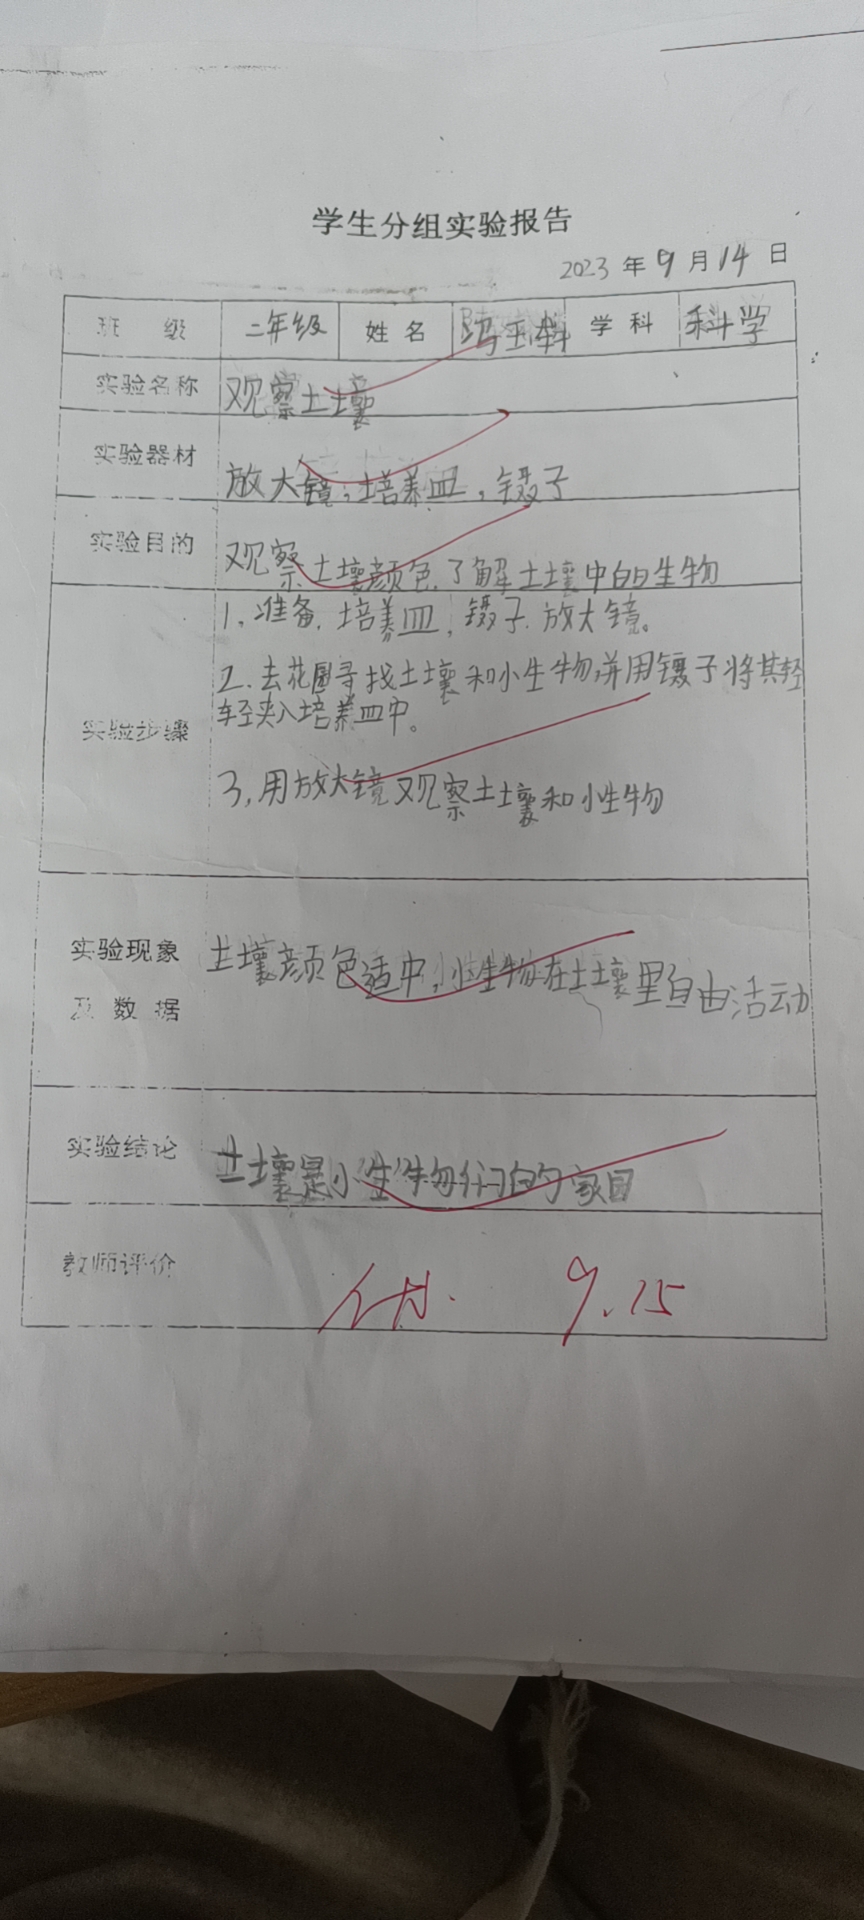 学生分组实验报告
2023年9月14日
班 级 二年级 姓 名 学 科 科学
实验名称 观察土壤
实验器材 放大镜，培养皿，镊子
实验目的 观察土壤颜色，了解土壤中的生物
1，准备，培养皿，镊子，放大镜。
2．去花园寻找土壤和小生物，并用镊子将其轻
实验步骤 轻夹入培养皿中。
3，用放大镜观察土壤和小生物
实验现象 土壤颜色适中，小生物在土壤里自由活动
及 数 据
实验结论 土壤是小生物们的家园
教师评价 9.15